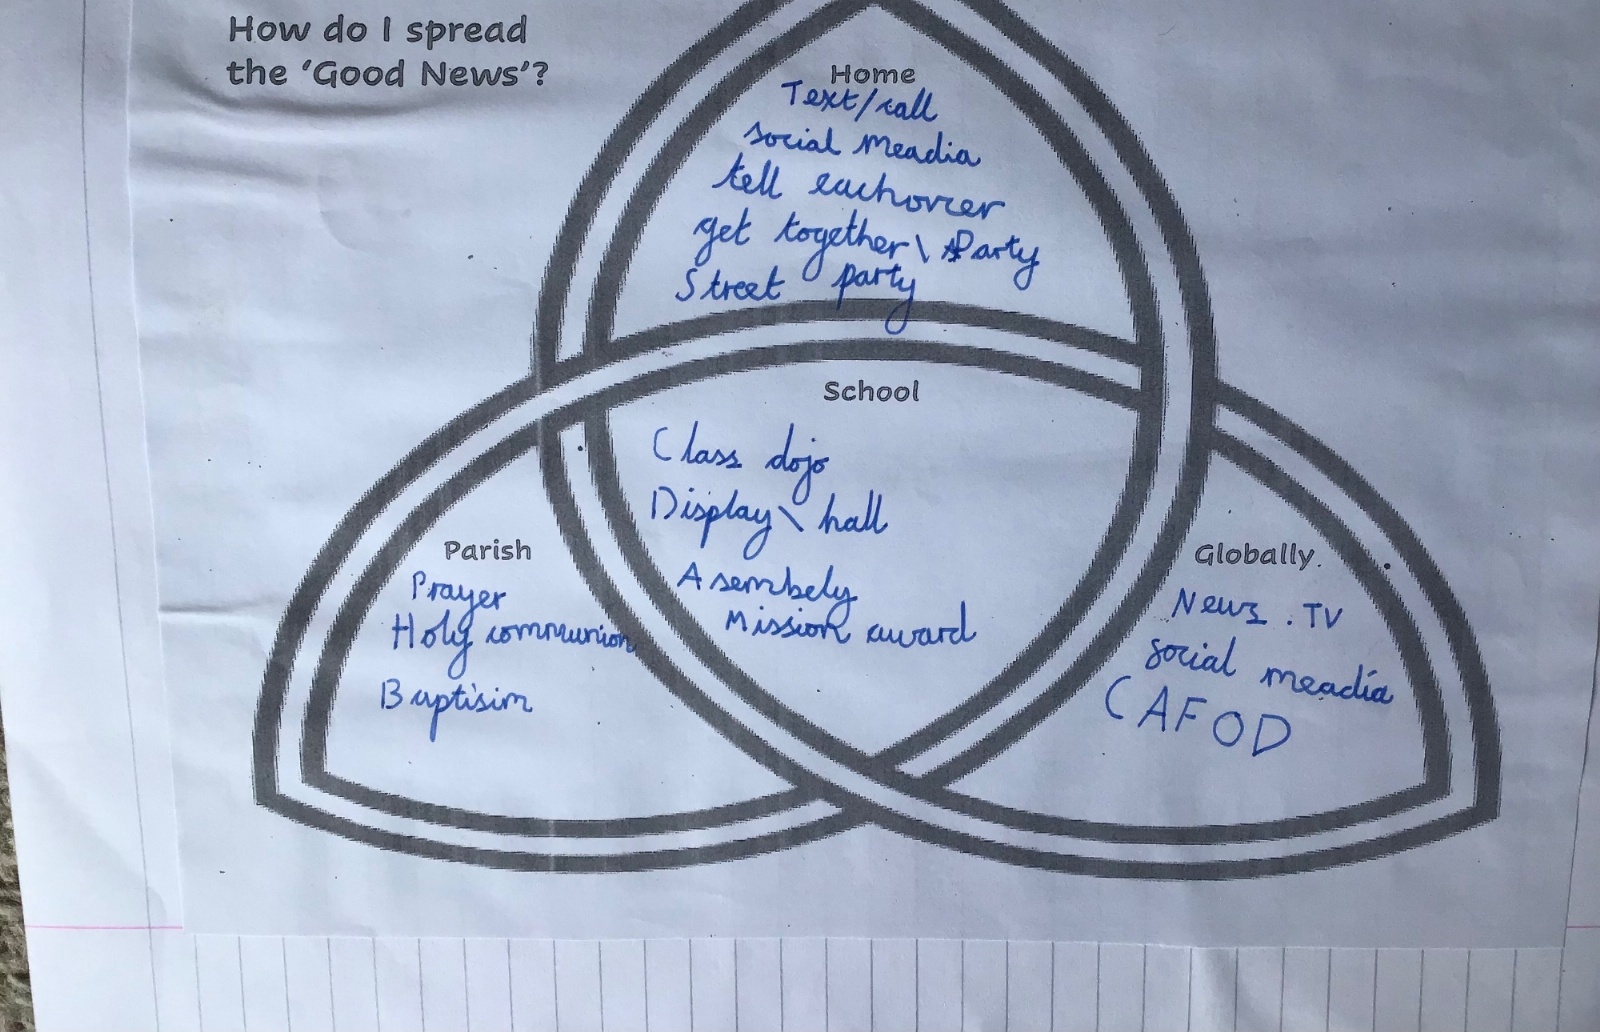 How do I spread
the 'Good News'?
Home
Text/call
social meadia
tell eachover
get together\ Party
Street party
School
Class dojo
Display\ hall
Asembely
Mission award
Parish
Prayer
Holy communion
Baptisim
Globally.
News . TV
social meadia
CAFOD